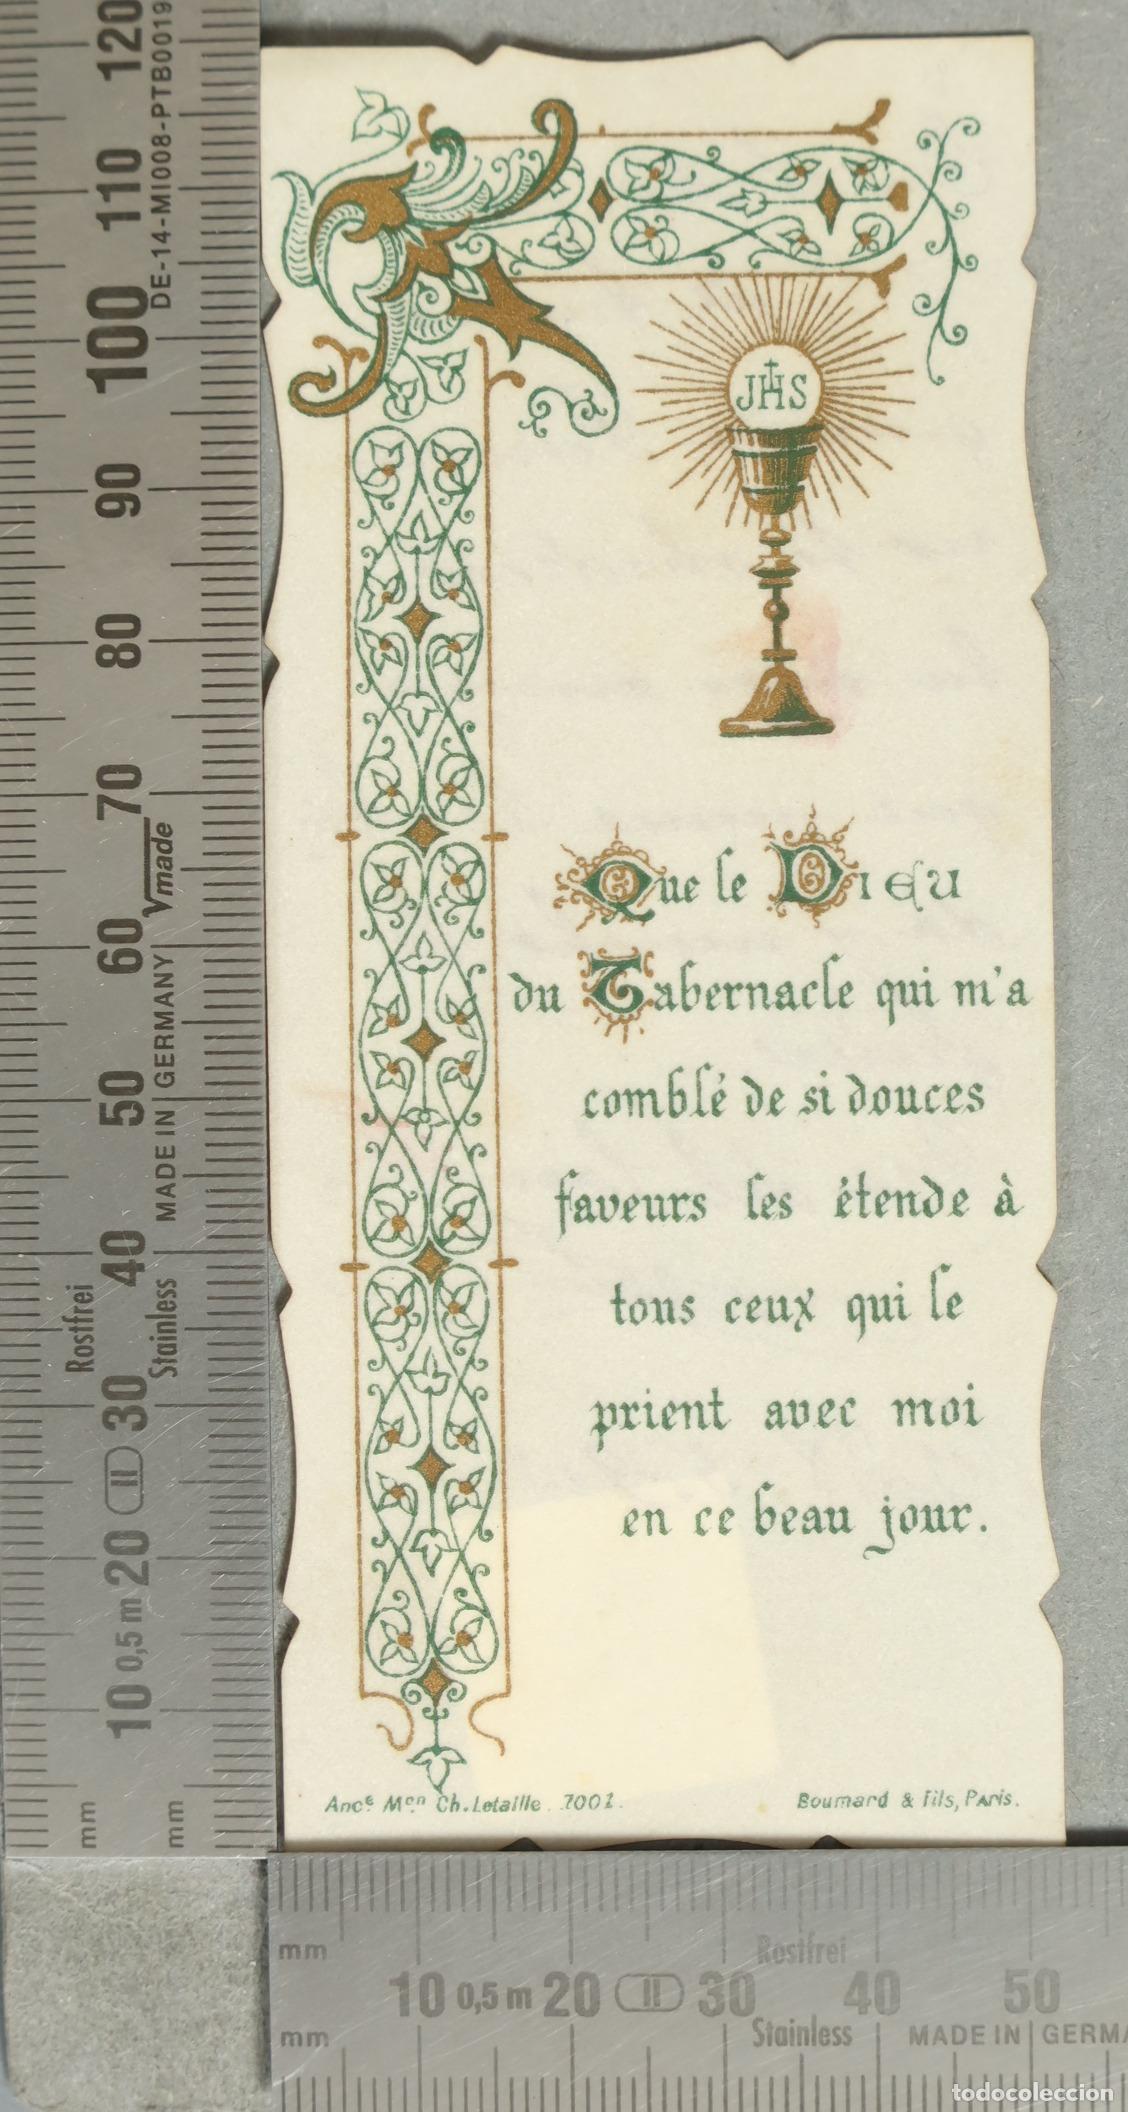 JHS
Que le Dieu
du Tabernacle qui m'a
comblé de si douces
faveurs les étende à
tous ceux qui le
prient avec moi
en ce beau jour.
Ancᵉ Mᵒⁿ Ch. Letaille 7001.
Boumard & Fils, Paris.
120
110
100
90
80
70
60
50
40
30
20
0,5 m
10
mm
mm
DE-14-MI008-PTB0019
Vmade
MADE IN GERMANY
Rostfrei
Stainless
II
mm
mm
10 0,5 m 20 II 30 40 50
Rostfrei
Stainless
MADE IN GERMA
todocoleccion